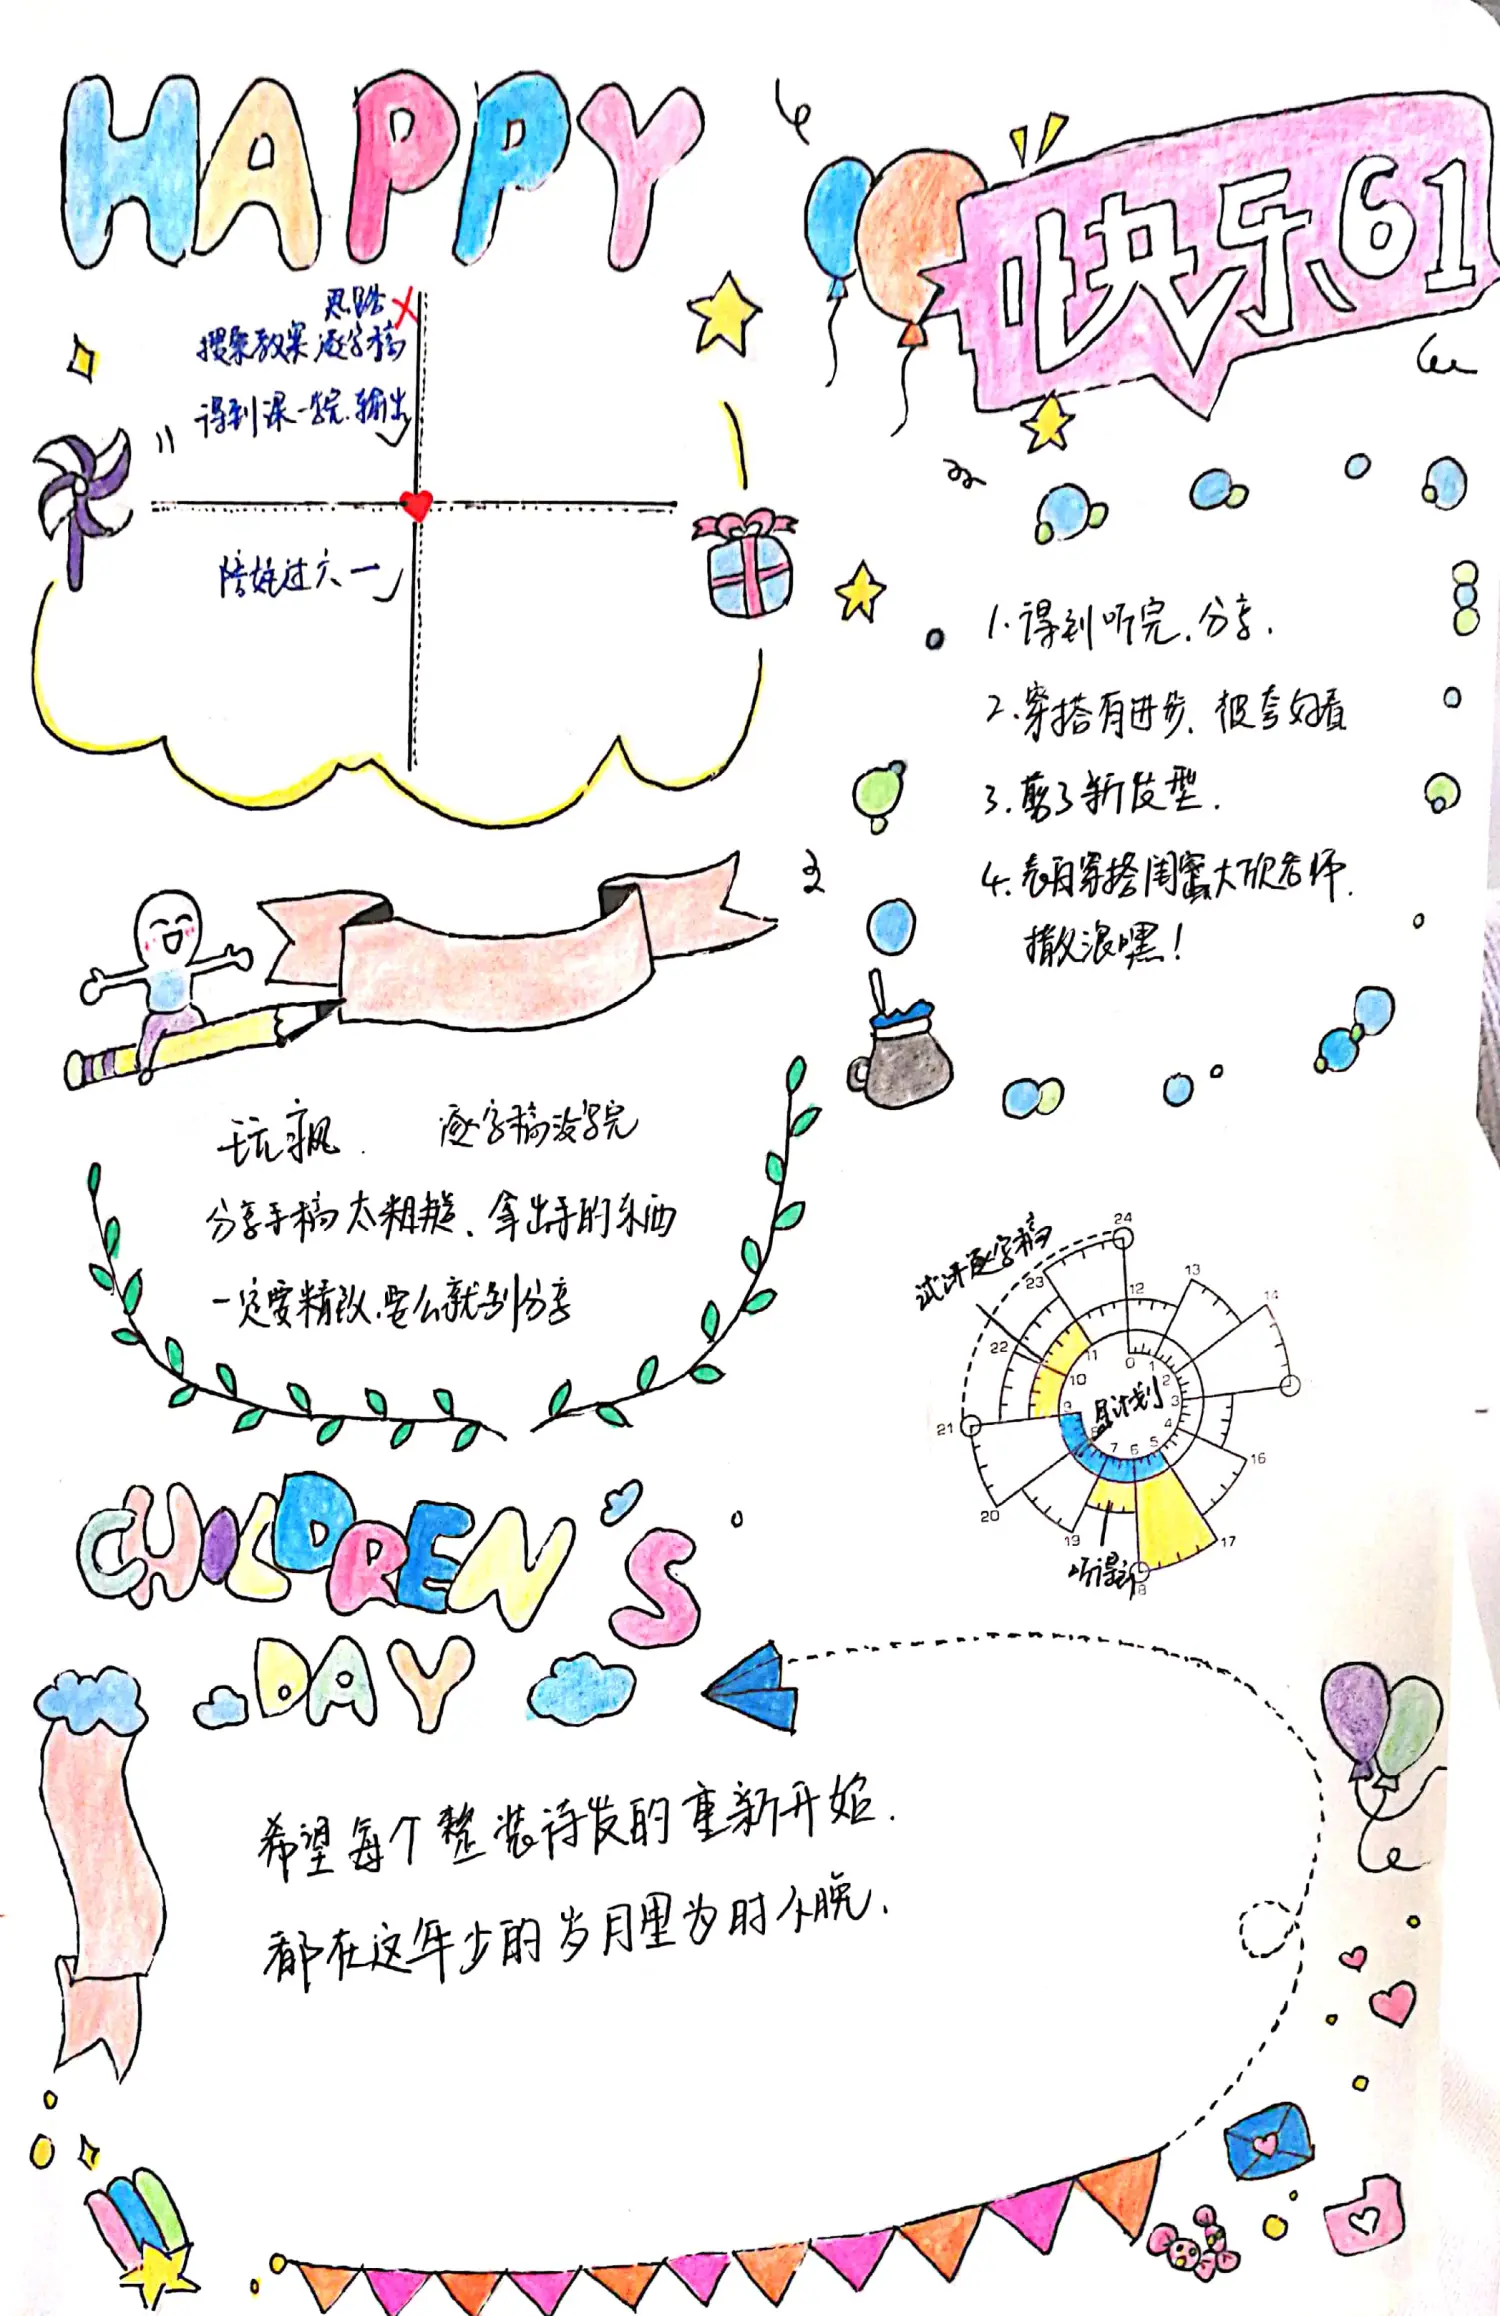 HAPPY
快乐61
思路 X
搜集教案 逐字稿
得到课一完.输出
陪娃过六一
1.得到听完.分享.
2.穿搭有进步.被夸好看
3.剪了新发型.
4.表白穿搭闺蜜大欣老师.
撒浪嘿!
玩飙. 逐字稿没写完
分享手稿太粗糙、拿出手的东西
一定要精致.要么就别分享
试讲逐字稿
24
23
12
13
14
22
11
0
1
2
10
3
9
4
21
8
7
6
5
16
20
19
17
18
听得到
CHILDREN'S
DAY
希望每个整装待发的重新开始.
都在这年少的岁月里为时不晚.